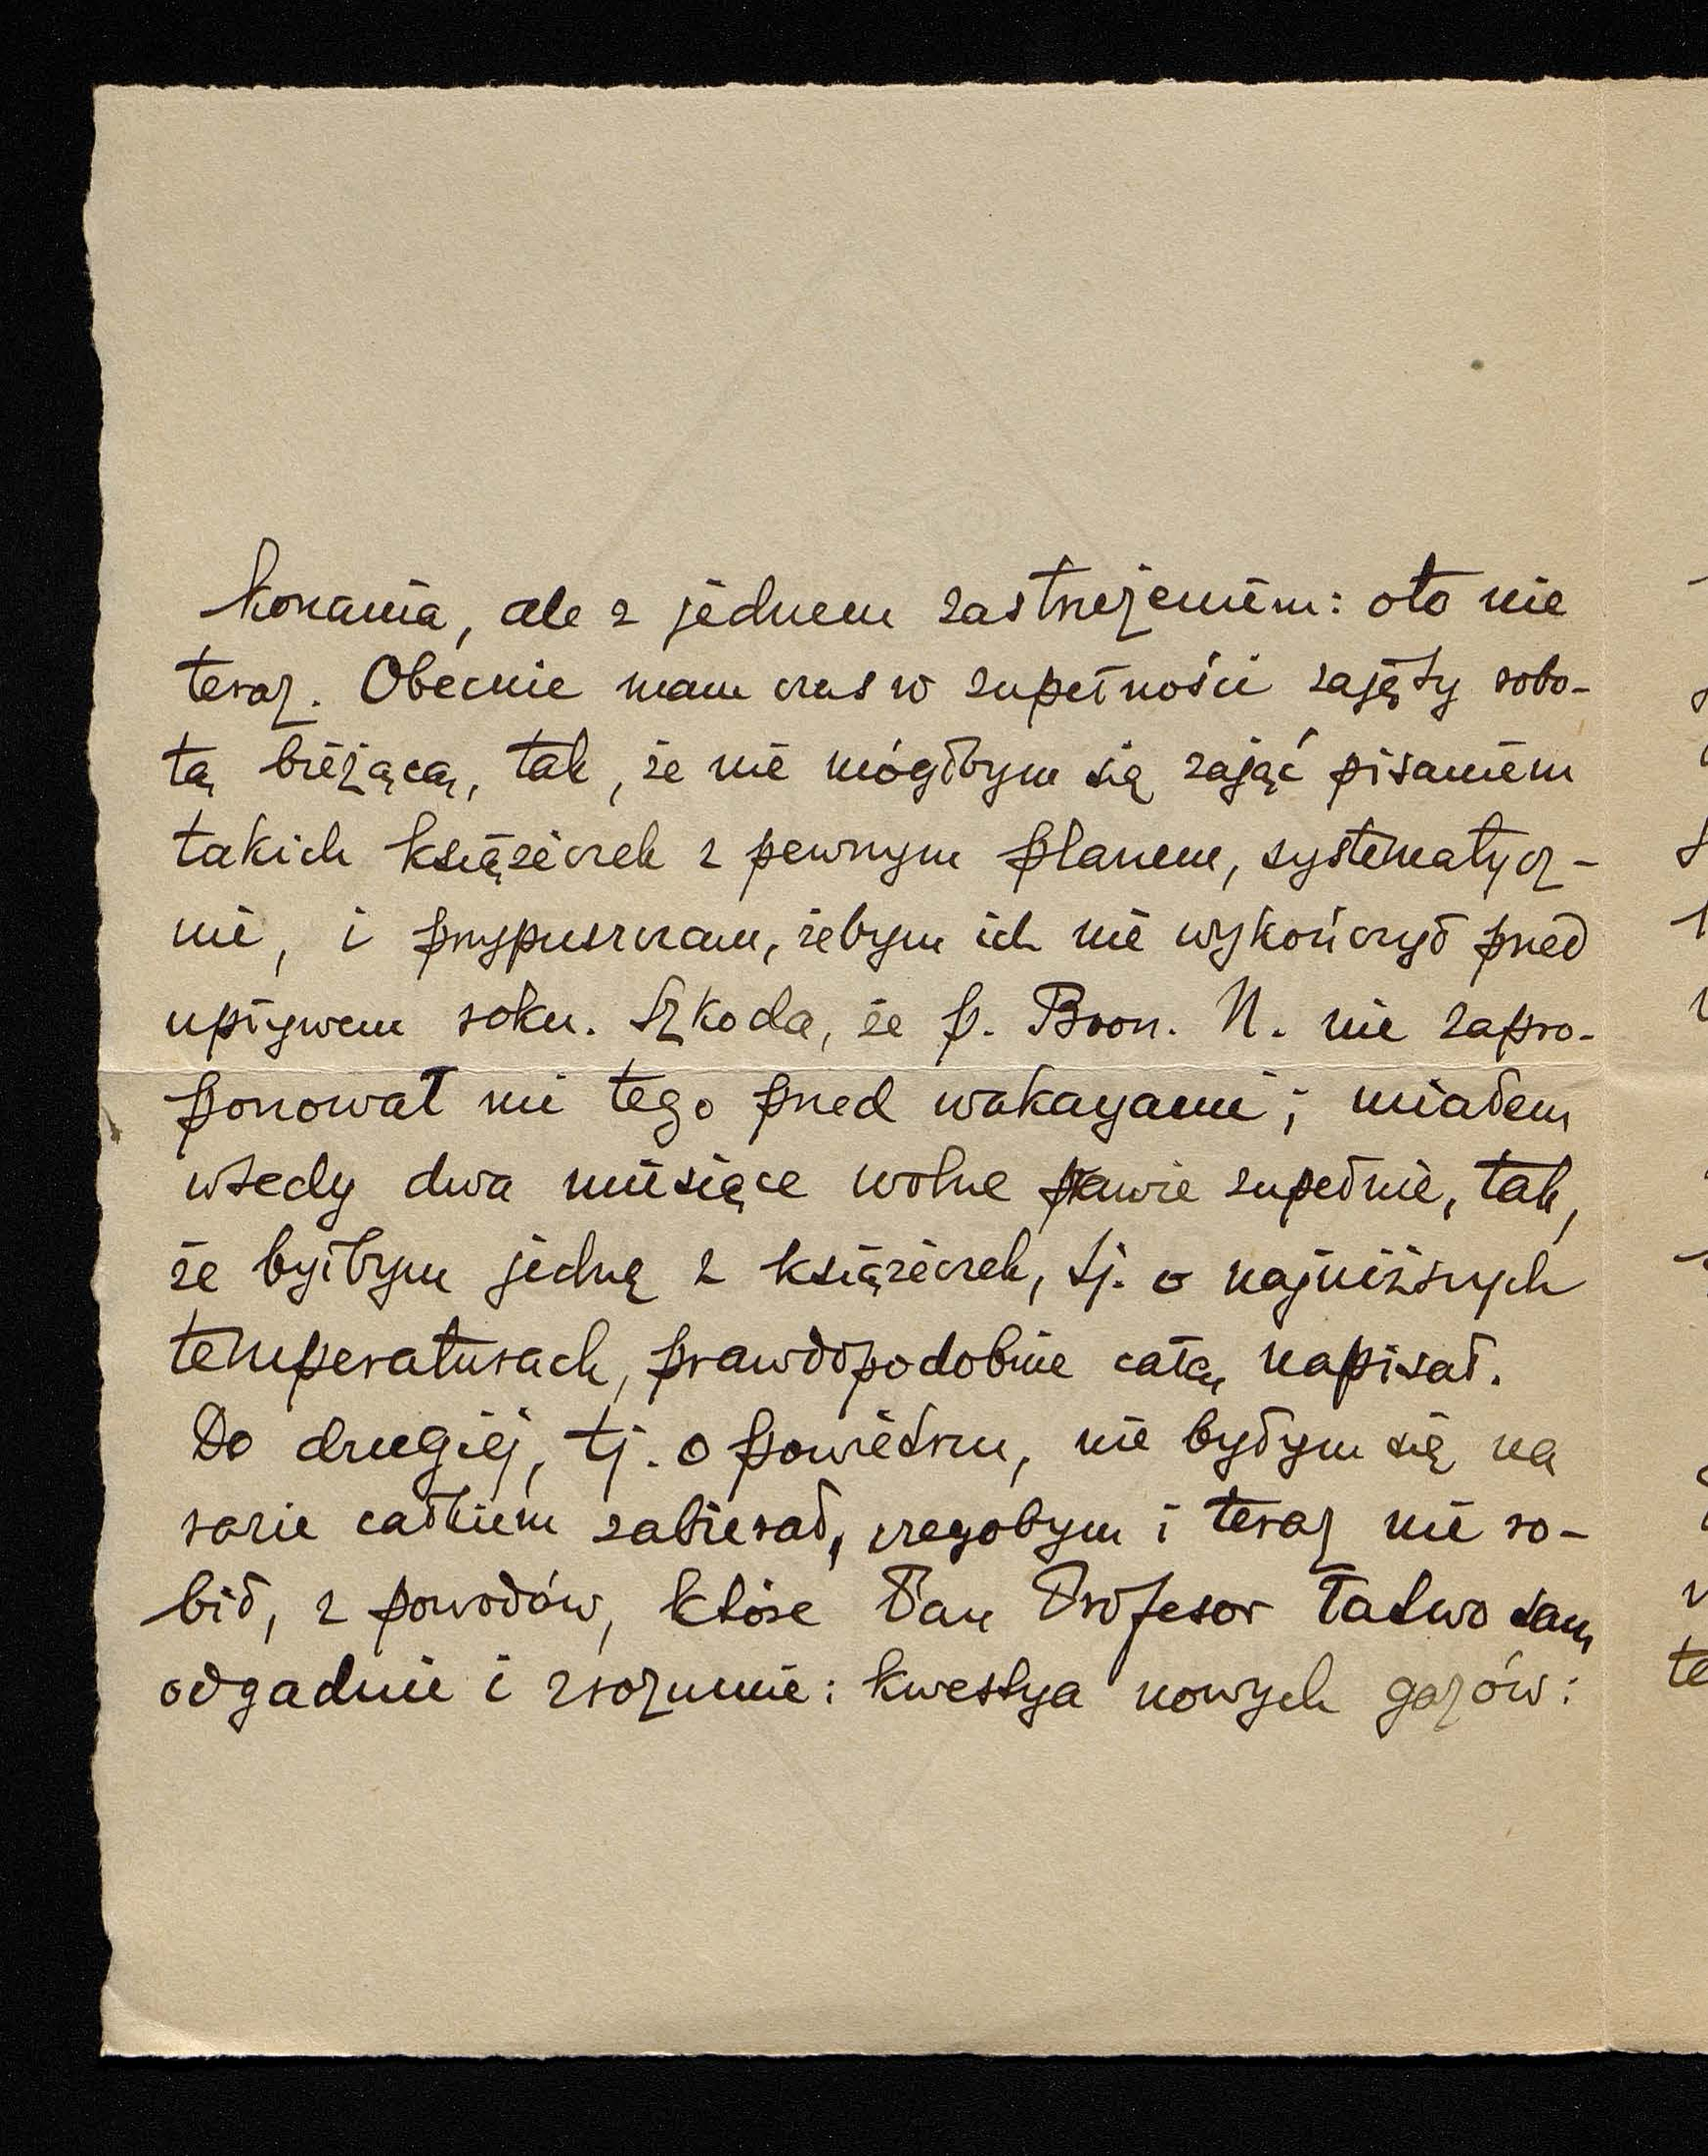 konania, ale z jednem zastrzeżeniem: oto nie
teraz. Obecnie mam czas w zupełności zajęty robo-
tą bieżącą, tak, że nie mógłbym się zająć pisaniem
takich książeczek z pewnym planem, systematycz-
nie, i przypuszczam, żebym ich nie wykończył przed
upływem roku. Szkoda, że p. Bron. N. nie zapro-
ponował mi tego przed wakacyami; miałem
wtedy dwa miesiące wolne prawie zupełnie, tak,
że byłbym jedną z książeczek, tj. o najniższych
temperaturach, prawdopodobnie całą napisał.
Do drugiej, tj. o powietrzu, nie byłbym się na
razie całkiem zabierał, czegobym i teraz nie ro-
bił, z powodów, które Pan Profesor łatwo sam
odgadnie i zrozumie: kwestya nowych gazów: